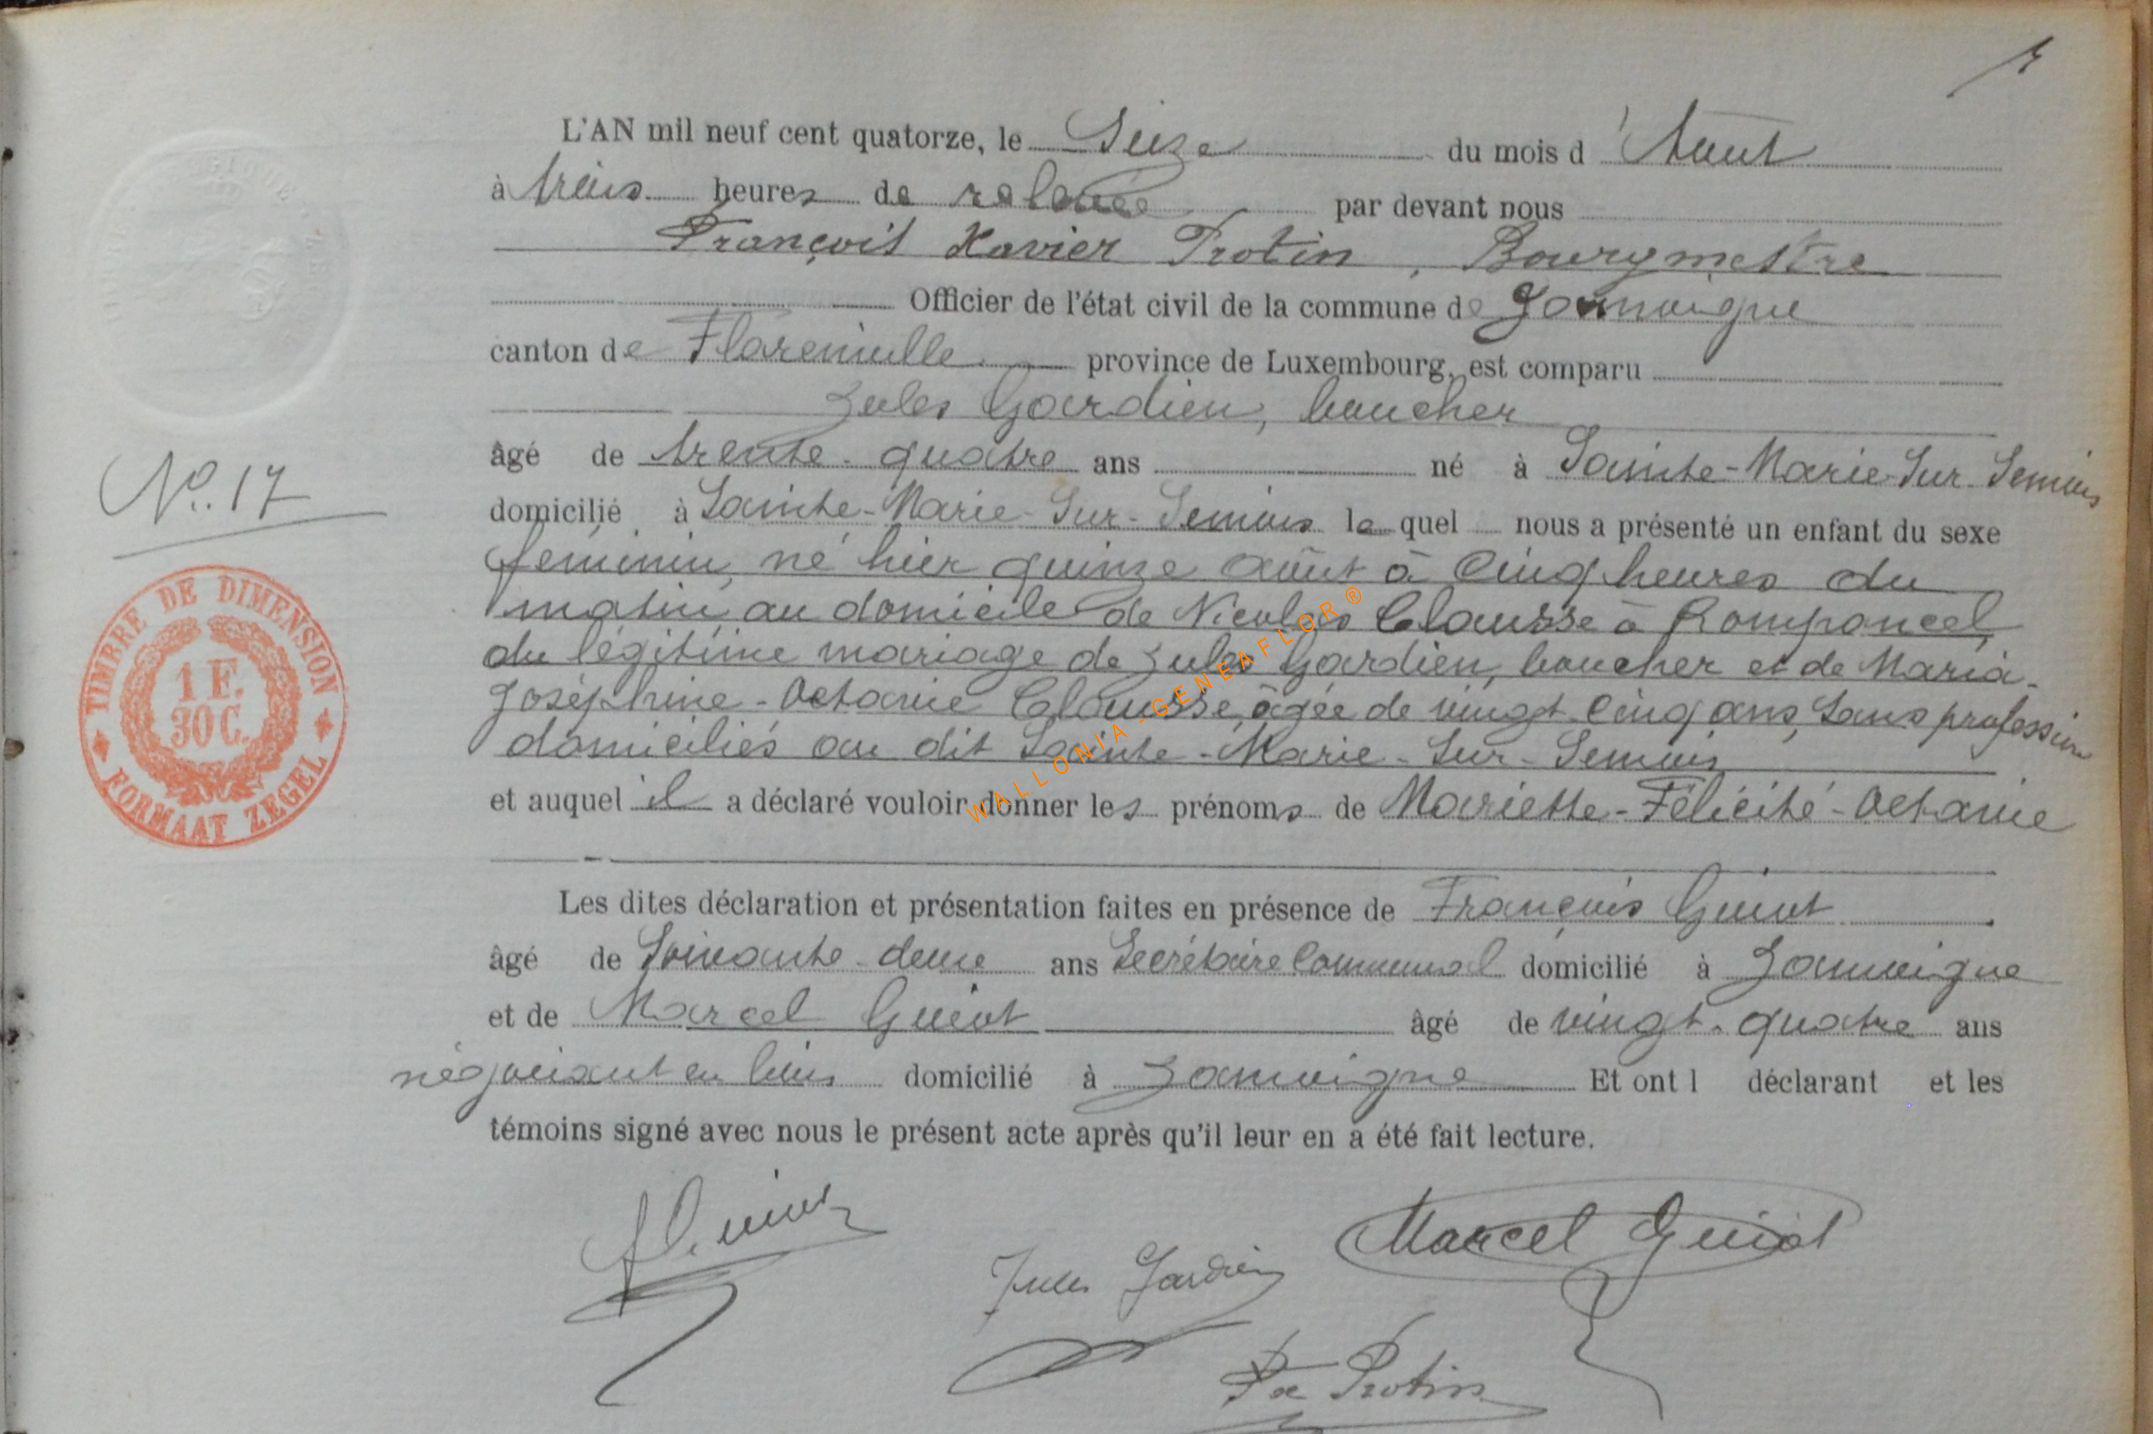 L'AN mil neuf cent quatorze, le Seize du mois d'Aout
à trois heures de relevée par devant nous
François Xavier Protin, Bourgmestre
Officier de l'état civil de la commune de Jamoigne
canton de Florenville province de Luxembourg, est comparu
Jules Gardien, boucher
âgé de trente-quatre ans né à Sainte-Marie-Sur-Semois
domicilié à Sainte-Marie-Sur-Semois le quel nous a présenté un enfant du sexe
féminin, né hier quinze août à Cinq heures du
matin, au domicile de Nicolas Clausse à Romponcel,
du légitime mariage de Jules Gardien, boucher et de Maria-
Joséphine-Octavie Clausse, âgée de vingt-Cinq ans, Sans profession
domiciliés au dit Sainte-Marie-Sur-Semois
et auquel il a déclaré vouloir donner les prénoms de Mariette-Félicité-Octavie
Les dites déclaration et présentation faites en présence de François Guiot
âgé de Soixante-deux ans Secrétaire Communal domicilié à Jamoigne
et de Marcel Guiot âgé de vingt-quatre ans
négociant en bois domicilié à Jamoigne Et ont l déclarant et les
témoins signé avec nous le présent acte après qu'il leur en a été fait lecture.
No. 17
TIMBRE DE DIMENSION
1 F.
30 C.
FORMAAT ZEGEL
WALLONIA-GENEAFLOR®
Marcel Guiot
Jules Gardien
Fx Protin